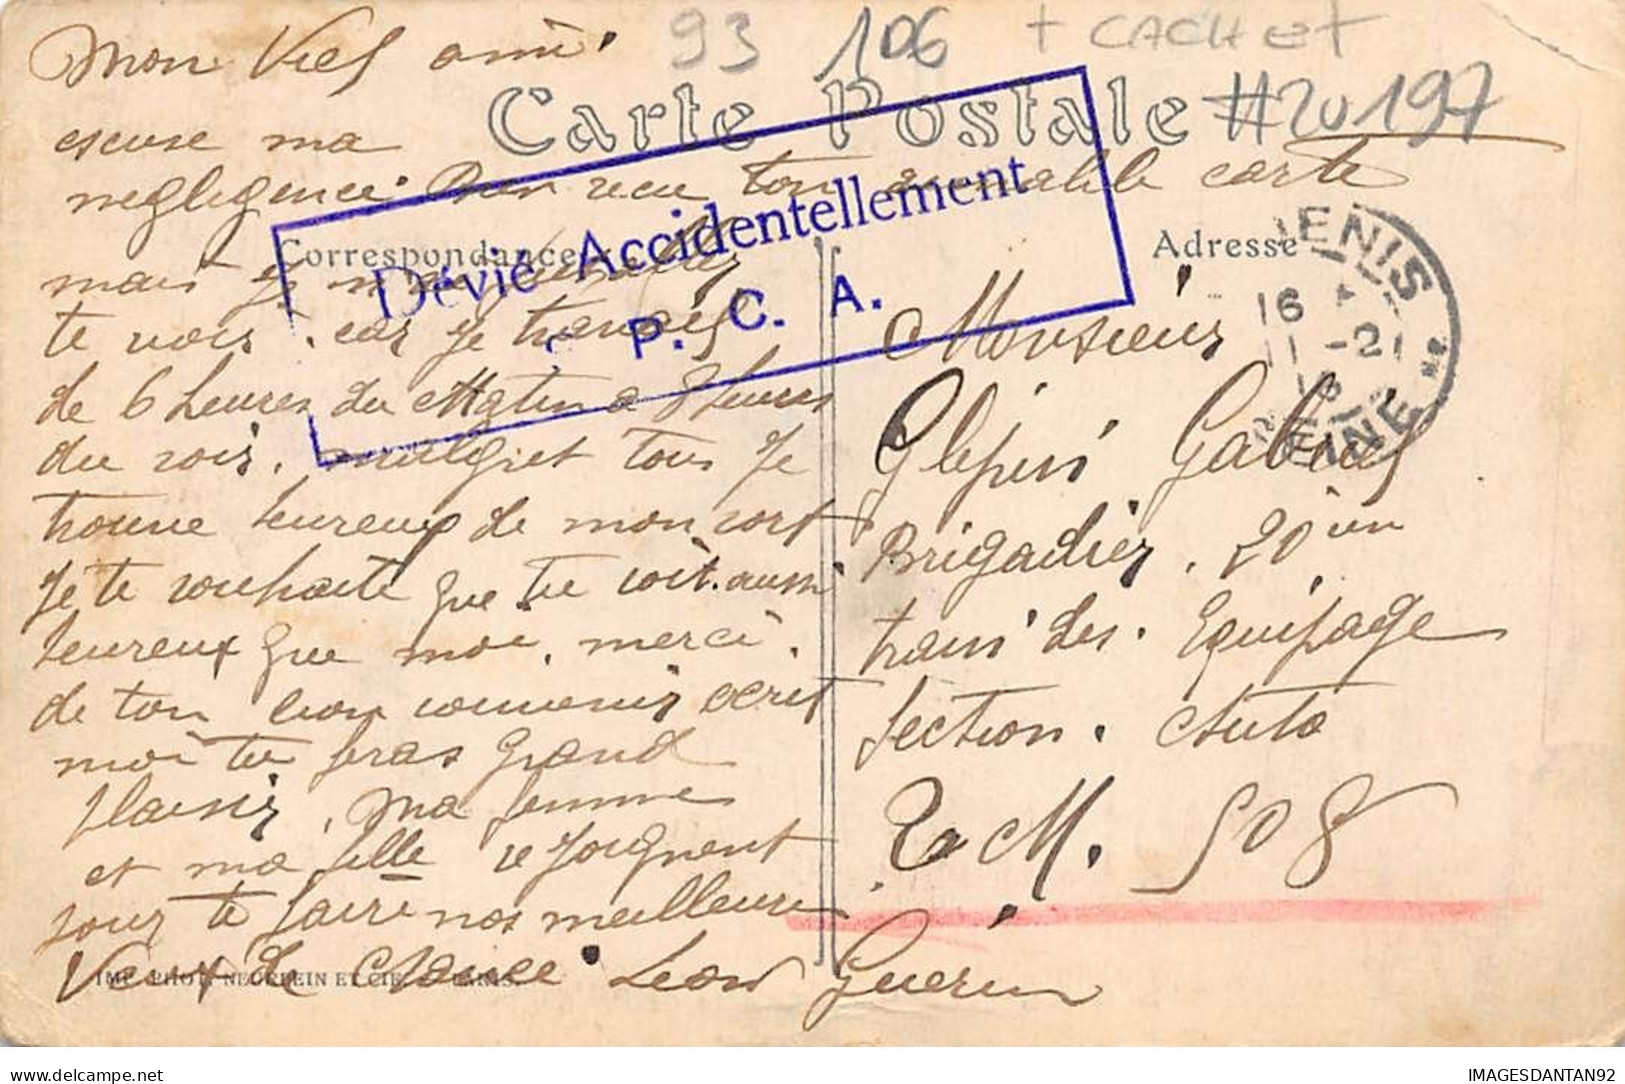 93 106 + CACHET
#20197
Carte Postale
Correspondance
Adresse
Dévié Accidentellement
P. C. A.
ENIS
16
1-2
EINE
Mon Viel ami
escuse ma
negligence. Bien recu ton aimable carte
mais je
te voir. car je travail
de 6 heures du Matin a 8 heures
du soir. malgret tous Je
trouve heureux de mon sort
Je te souhaite que tu soit aussi
heureux que moi. merci.
de ton bon souvenir ecrit
moi tu feras Grand
plaisir, Ma femme
et ma fille se joignent
pour te faire nos meilleurs
Veux de chance. Leon Guerin
Monsieur
Glepin Gabriel
Brigadier. 20 ièm
train des. Equipage
Section. Auto
T. M. 508
IMP. PHOT. NEURDEIN ET CIE PARIS.
IMAGESDANTAN92